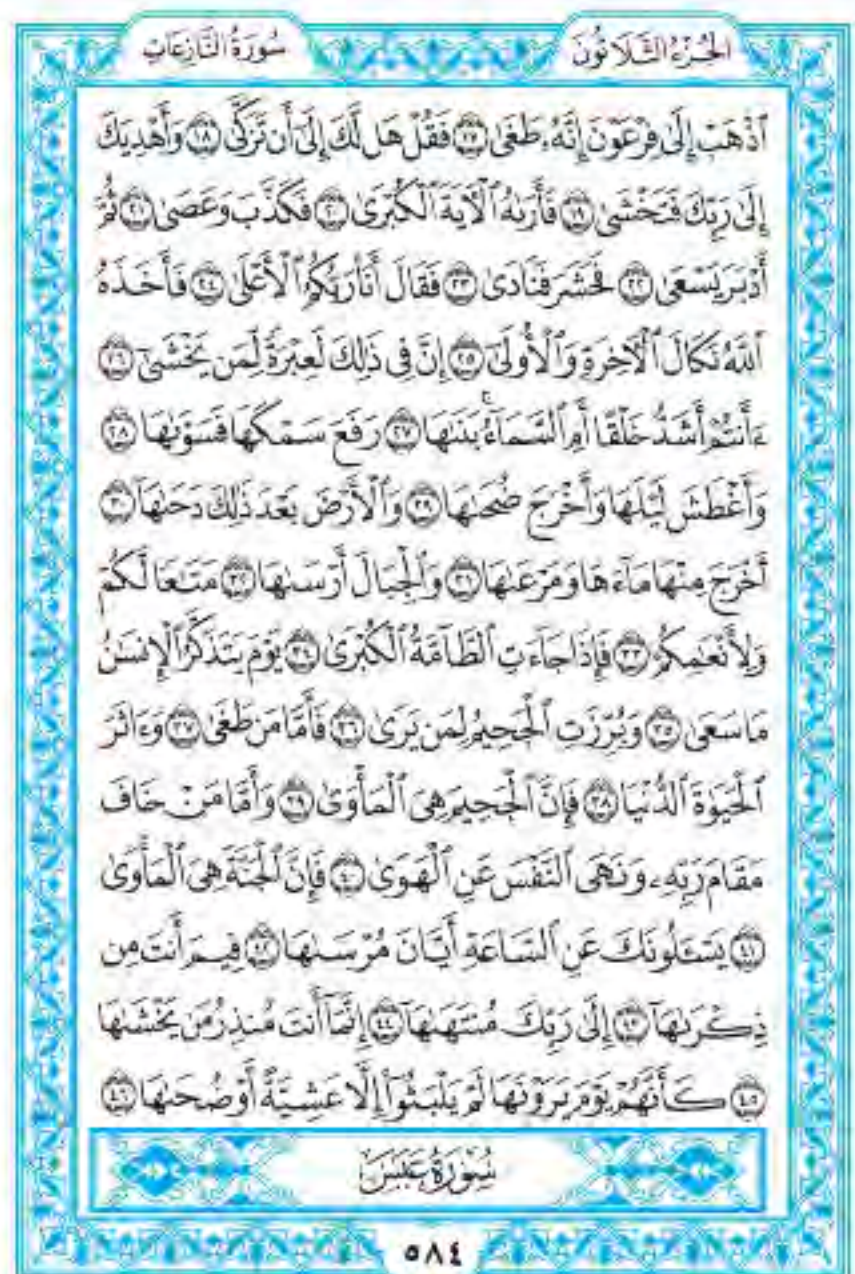 الجُزْءُ الثَّلَاثُونَ
سُورَةُ النَّازِعَاتِ
ٱذْهَبْ إِلَىٰ فِرْعَوْنَ إِنَّهُۥ طَغَىٰ ١٧ فَقُلْ هَل لَّكَ إِلَىٰٓ أَن تَزَكَّىٰ ١٨ وَأَهْدِيَكَ
إِلَىٰ رَبِّكَ فَتَخْشَىٰ ١٩ فَأَرَىٰهُ ٱلْءَايَةَ ٱلْكُبْرَىٰ ٢٠ فَكَذَّبَ وَعَصَىٰ ٢١ ثُمَّ
أَدْبَرَ يَسْعَىٰ ٢٢ فَحَشَرَ فَنَادَىٰ ٢٣ فَقَالَ أَنَا۠ رَبُّكُمُ ٱلْأَعْلَىٰ ٢٤ فَأَخَذَهُ
ٱللَّهُ نَكَالَ ٱلْءَاخِرَةِ وَٱلْأُولَىٰٓ ٢٥ إِنَّ فِى ذَٰلِكَ لَعِبْرَةً لِّمَن يَخْشَىٰٓ ٢٦
ءَأَنتُمْ أَشَدُّ خَلْقًا أَمِ ٱلسَّمَآءُ ۚ بَنَىٰهَا ٢٧ رَفَعَ سَمْكَهَا فَسَوَّىٰهَا ٢٨
وَأَغْطَشَ لَيْلَهَا وَأَخْرَجَ ضُحَىٰهَا ٢٩ وَٱلْأَرْضَ بَعْدَ ذَٰلِكَ دَحَىٰهَآ ٣٠
أَخْرَجَ مِنْهَا مَآءَهَا وَمَرْعَىٰهَا ٣١ وَٱلْجِبَالَ أَرْسَىٰهَا ٣٢ مَتَٰعًا لَّكُمْ
وَلِأَنْعَٰمِكُمْ ٣٣ فَإِذَا جَآءَتِ ٱلطَّآمَّةُ ٱلْكُبْرَىٰ ٣٤ يَوْمَ يَتَذَكَّرُ ٱلْإِنسَٰنُ
مَا سَعَىٰ ٣٥ وَبُرِّزَتِ ٱلْجَحِيمُ لِمَن يَرَىٰ ٣٦ فَأَمَّا مَن طَغَىٰ ٣٧ وَءَاثَرَ
ٱلْحَيَوٰةَ ٱلدُّنْيَا ٣٨ فَإِنَّ ٱلْجَحِيمَ هِىَ ٱلْمَأْوَىٰ ٣٩ وَأَمَّا مَنْ خَافَ
مَقَامَ رَبِّهِۦ وَنَهَى ٱلنَّفْسَ عَنِ ٱلْهَوَىٰ ٤٠ فَإِنَّ ٱلْجَنَّةَ هِىَ ٱلْمَأْوَىٰ
٤١ يَسْـَٔلُونَكَ عَنِ ٱلسَّاعَةِ أَيَّانَ مُرْسَىٰهَا ٤٢ فِيمَ أَنتَ مِن
ذِكْرَىٰهَآ ٤٣ إِلَىٰ رَبِّكَ مُنتَهَىٰهَآ ٤٤ إِنَّمَآ أَنتَ مُنذِرُ مَن يَخْشَىٰهَا
٤٥ كَأَنَّهُمْ يَوْمَ يَرَوْنَهَا لَمْ يَلْبَثُوٓا۟ إِلَّا عَشِيَّةً أَوْ ضُحَىٰهَا ٤٦
سُورَةُ عَبَسَ
٥٨٤